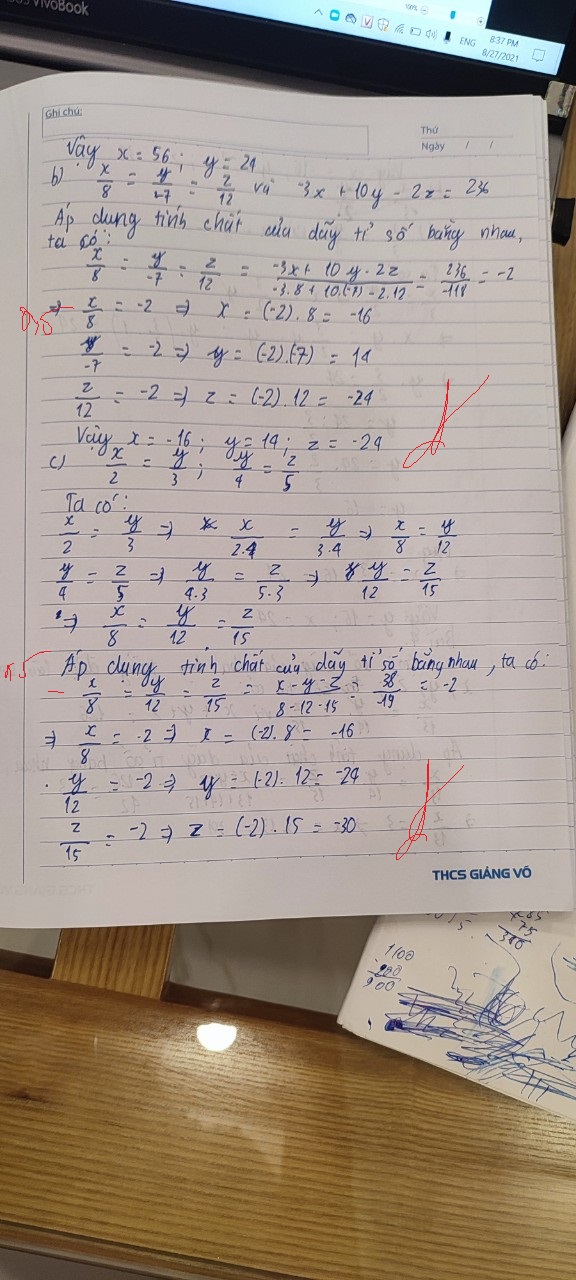 VivoBook
100%
ENG
8:37 PM
8/27/2021
Ghi chú:
Thứ
Ngày / /
Vậy x = 56 ; y = 21
b) x/8 = y/-7 = z/12 và -3x + 10y - 2z = 236
Áp dụng tính chất của dãy tỉ số bằng nhau,
ta có:
x/8 = y/-7 = z/12 = -3x + 10y - 2z/-3.8 + 10.(-7) - 2.12 = 236/-118 = -2
0,5
⇒ x/8 = -2 ⇒ x = (-2).8 = -16
y/-7 = -2 ⇒ y = (-2).(7) = 14
z/12 = -2 ⇒ z = (-2).12 = -24
Vậy x = -16 ; y = 14 ; z = -24
c) x/2 = y/3 ; y/4 = z/5
Ta có:
x/2 = y/3 ⇒ x/2.4 = y/3.4 ⇒ x/8 = y/12
y/4 = z/5 ⇒ y/4.3 = z/5.3 ⇒ y/12 = z/15
⇒ x/8 = y/12 = z/15
Áp dụng tính chất của dãy tỉ số bằng nhau, ta có:
x/8 = y/12 = z/15 = x - y - z/8 - 12 - 15 = 38/19 = -2
⇒ x/8 = -2 ⇒ x = (-2).8 = -16
y/12 = -2 ⇒ y = (-2).12 = -24
z/15 = -2 ⇒ z = (-2).15 = -30
THCS GIẢNG VÕ
1100
200
900